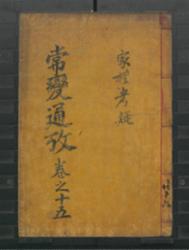 家禮考疑
常變通攷 卷之十五